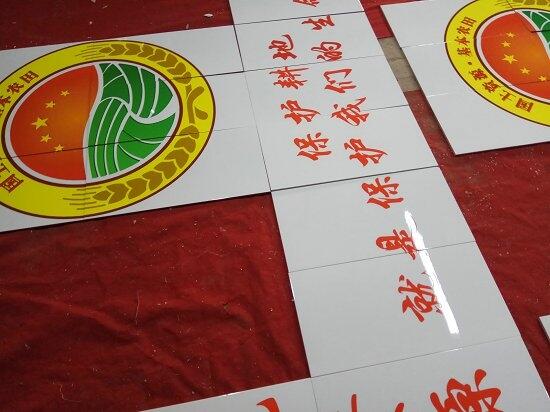 保护耕地
就是保护我们的生
国土
基本农田
国土资源·基本农田